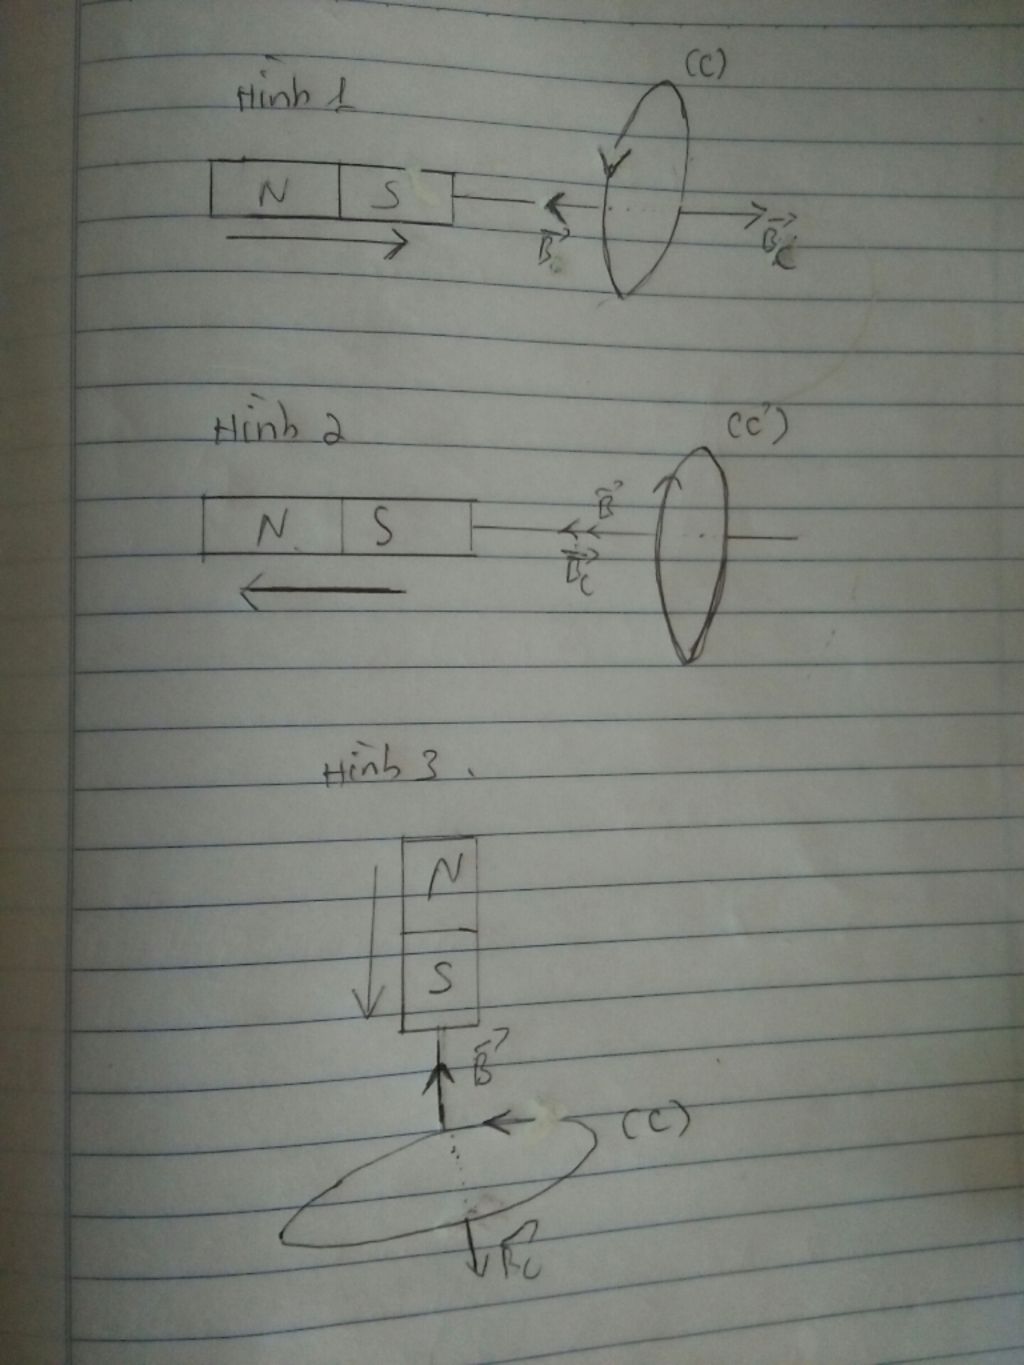 Hình 1
(C)
N S
B⃗
B⃗c
Hình 2
(C')
N S
B⃗
B⃗c
Hình 3.
N
S
B⃗
(C)
B⃗c